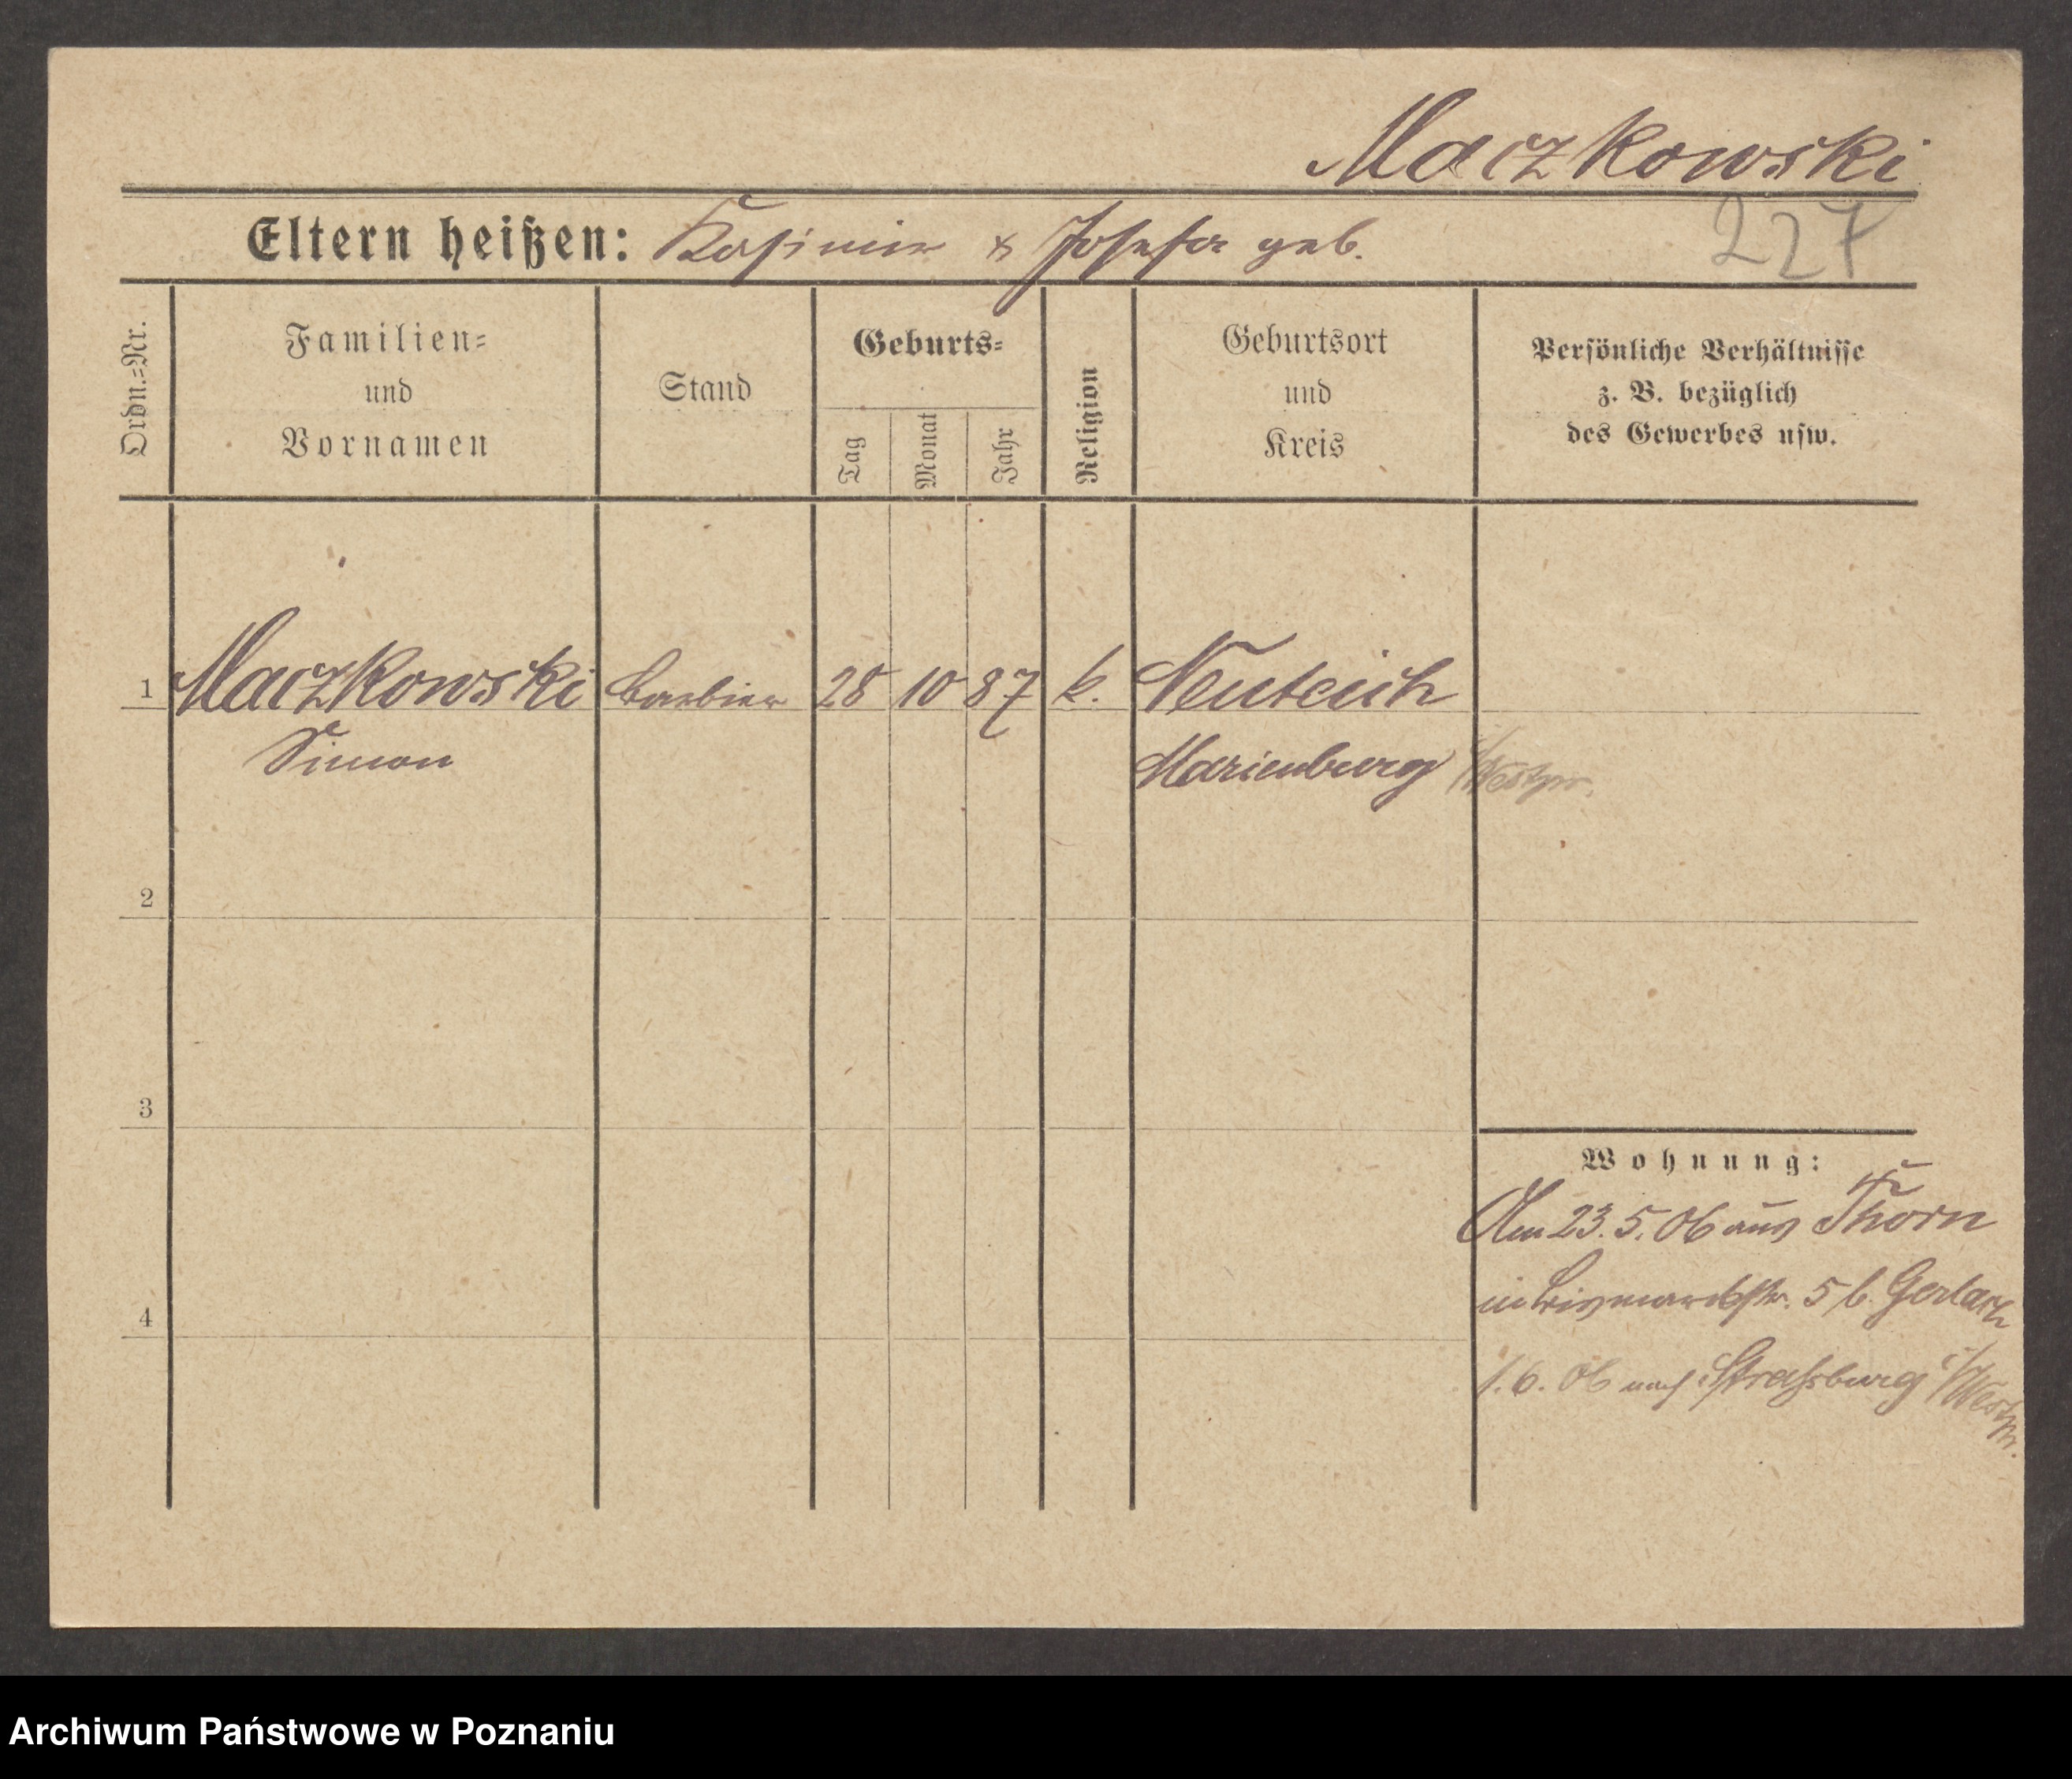 Maczkowski
Eltern heißen: Kasimir & Josefa geb.
227
Ordn.=Nr.
Familien=
und
Vornamen
Stand
Geburts=
Tag
Monat
Jahr
Religion
Geburtsort
und
Kreis
Persönliche Verhältnisse
z. B. bezüglich
des Gewerbes usw.
1 Maczkowski Barbier 28 10 87 k. Neuteich
Simon Marienburg /Westpr.
2
3
4
Wohnung:
Am 23.5.06 aus Thorn
in Bismarckstr. 5 b. Gerlach
1.6.06 nach Strassburg i/Westpr.
Archiwum Państwowe w Poznaniu